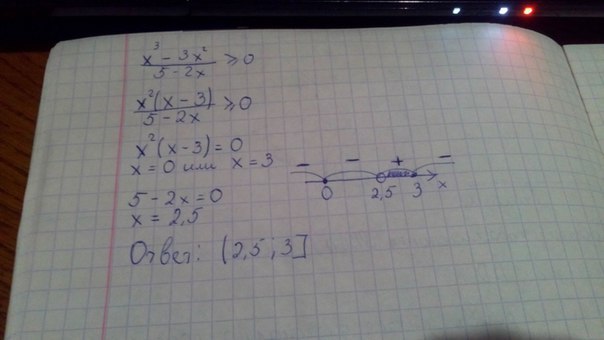 x³ − 3x² / 5 − 2x ⩾ 0
x²(x − 3) / 5 − 2x ⩾ 0
x²(x − 3) = 0
x = 0 или x = 3
5 − 2x = 0
x = 2,5
− − + −
0 2,5 3 x
Ответ: (2,5 ; 3]